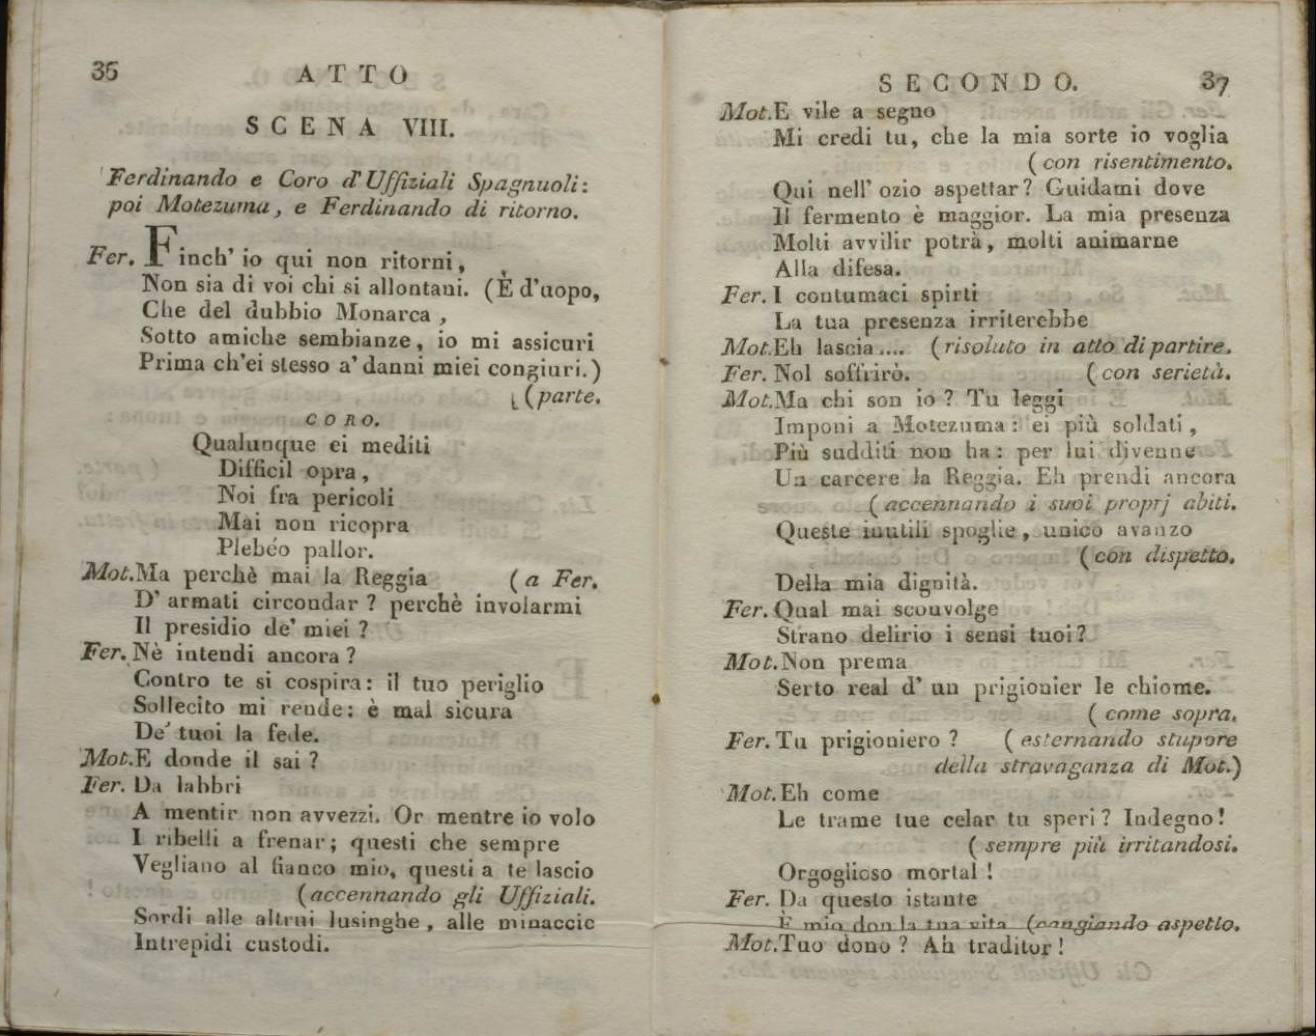 36
ATTO
SCENA VIII.
Ferdinando e Coro d'Uffiziali Spagnuoli:
poi Motezuma, e Ferdinando di ritorno.
Fer. Finch' io qui non ritorni,
Non sia di voi chi si allontani. (È d'uopo,
Che del dubbio Monarca,
Sotto amiche sembianze, io mi assicuri
Prima ch'ei stesso a' danni miei congiuri.)
(parte.
CORO.
Qualunque ei mediti
Difficil opra,
Noi fra pericoli
Mai non ricopra
Plebéo pallor.
Mot. Ma perchè mai la Reggia (a Fer.
D' armati circondar? perchè involarmi
Il presidio de' miei?
Fer. Nè intendi ancora?
Contro te si cospira: il tuo periglio
Sollecito mi rende: è mal sicura
De' tuoi la fede.
Mot. E donde il sai?
Fer. Da labbri
A mentir non avvezzi. Or mentre io volo
I ribelli a frenar; questi che sempre
Vegliano al fianco mio, questi a te lascio
(accennando gli Uffiziali.
Sordi alle altrui lusinghe, alle minaccie
Intrepidi custodi.
SECONDO.
37
Mot. E vile a segno
Mi credi tu, che la mia sorte io voglia
(con risentimento.
Qui nell' ozio aspettar? Guidami dove
Il fermento è maggior. La mia presenza
Molti avvilir potrà, molti animarne
Alla difesa.
Fer. I contumaci spirti
La tua presenza irriterebbe
Mot. Eh lascia.... (risoluto in atto di partire.
Fer. Nol soffrirò. (con serietà.
Mot. Ma chi son io? Tu leggi
Imponi a Motezuma: ei più soldati,
Più sudditi non ha: per lui divenne
Un carcere la Reggia. Eh prendi ancora
(accennando i suoi proprj abiti.
Queste inutili spoglie, unico avanzo
(con dispetto.
Della mia dignità.
Fer. Qual mai sconvolge
Strano delirio i sensi tuoi?
Mot. Non prema
Serto real d' un prigionier le chiome.
(come sopra.
Fer. Tu prigioniero? (esternando stupore
della stravaganza di Mot.)
Mot. Eh come
Le trame tue celar tu speri? Indegno!
(sempre più irritandosi.
Orgoglioso mortal!
Fer. Da questo istante
È mio don la tua vita (cangiando aspetto.
Mot. Tuo dono? Ah traditor!